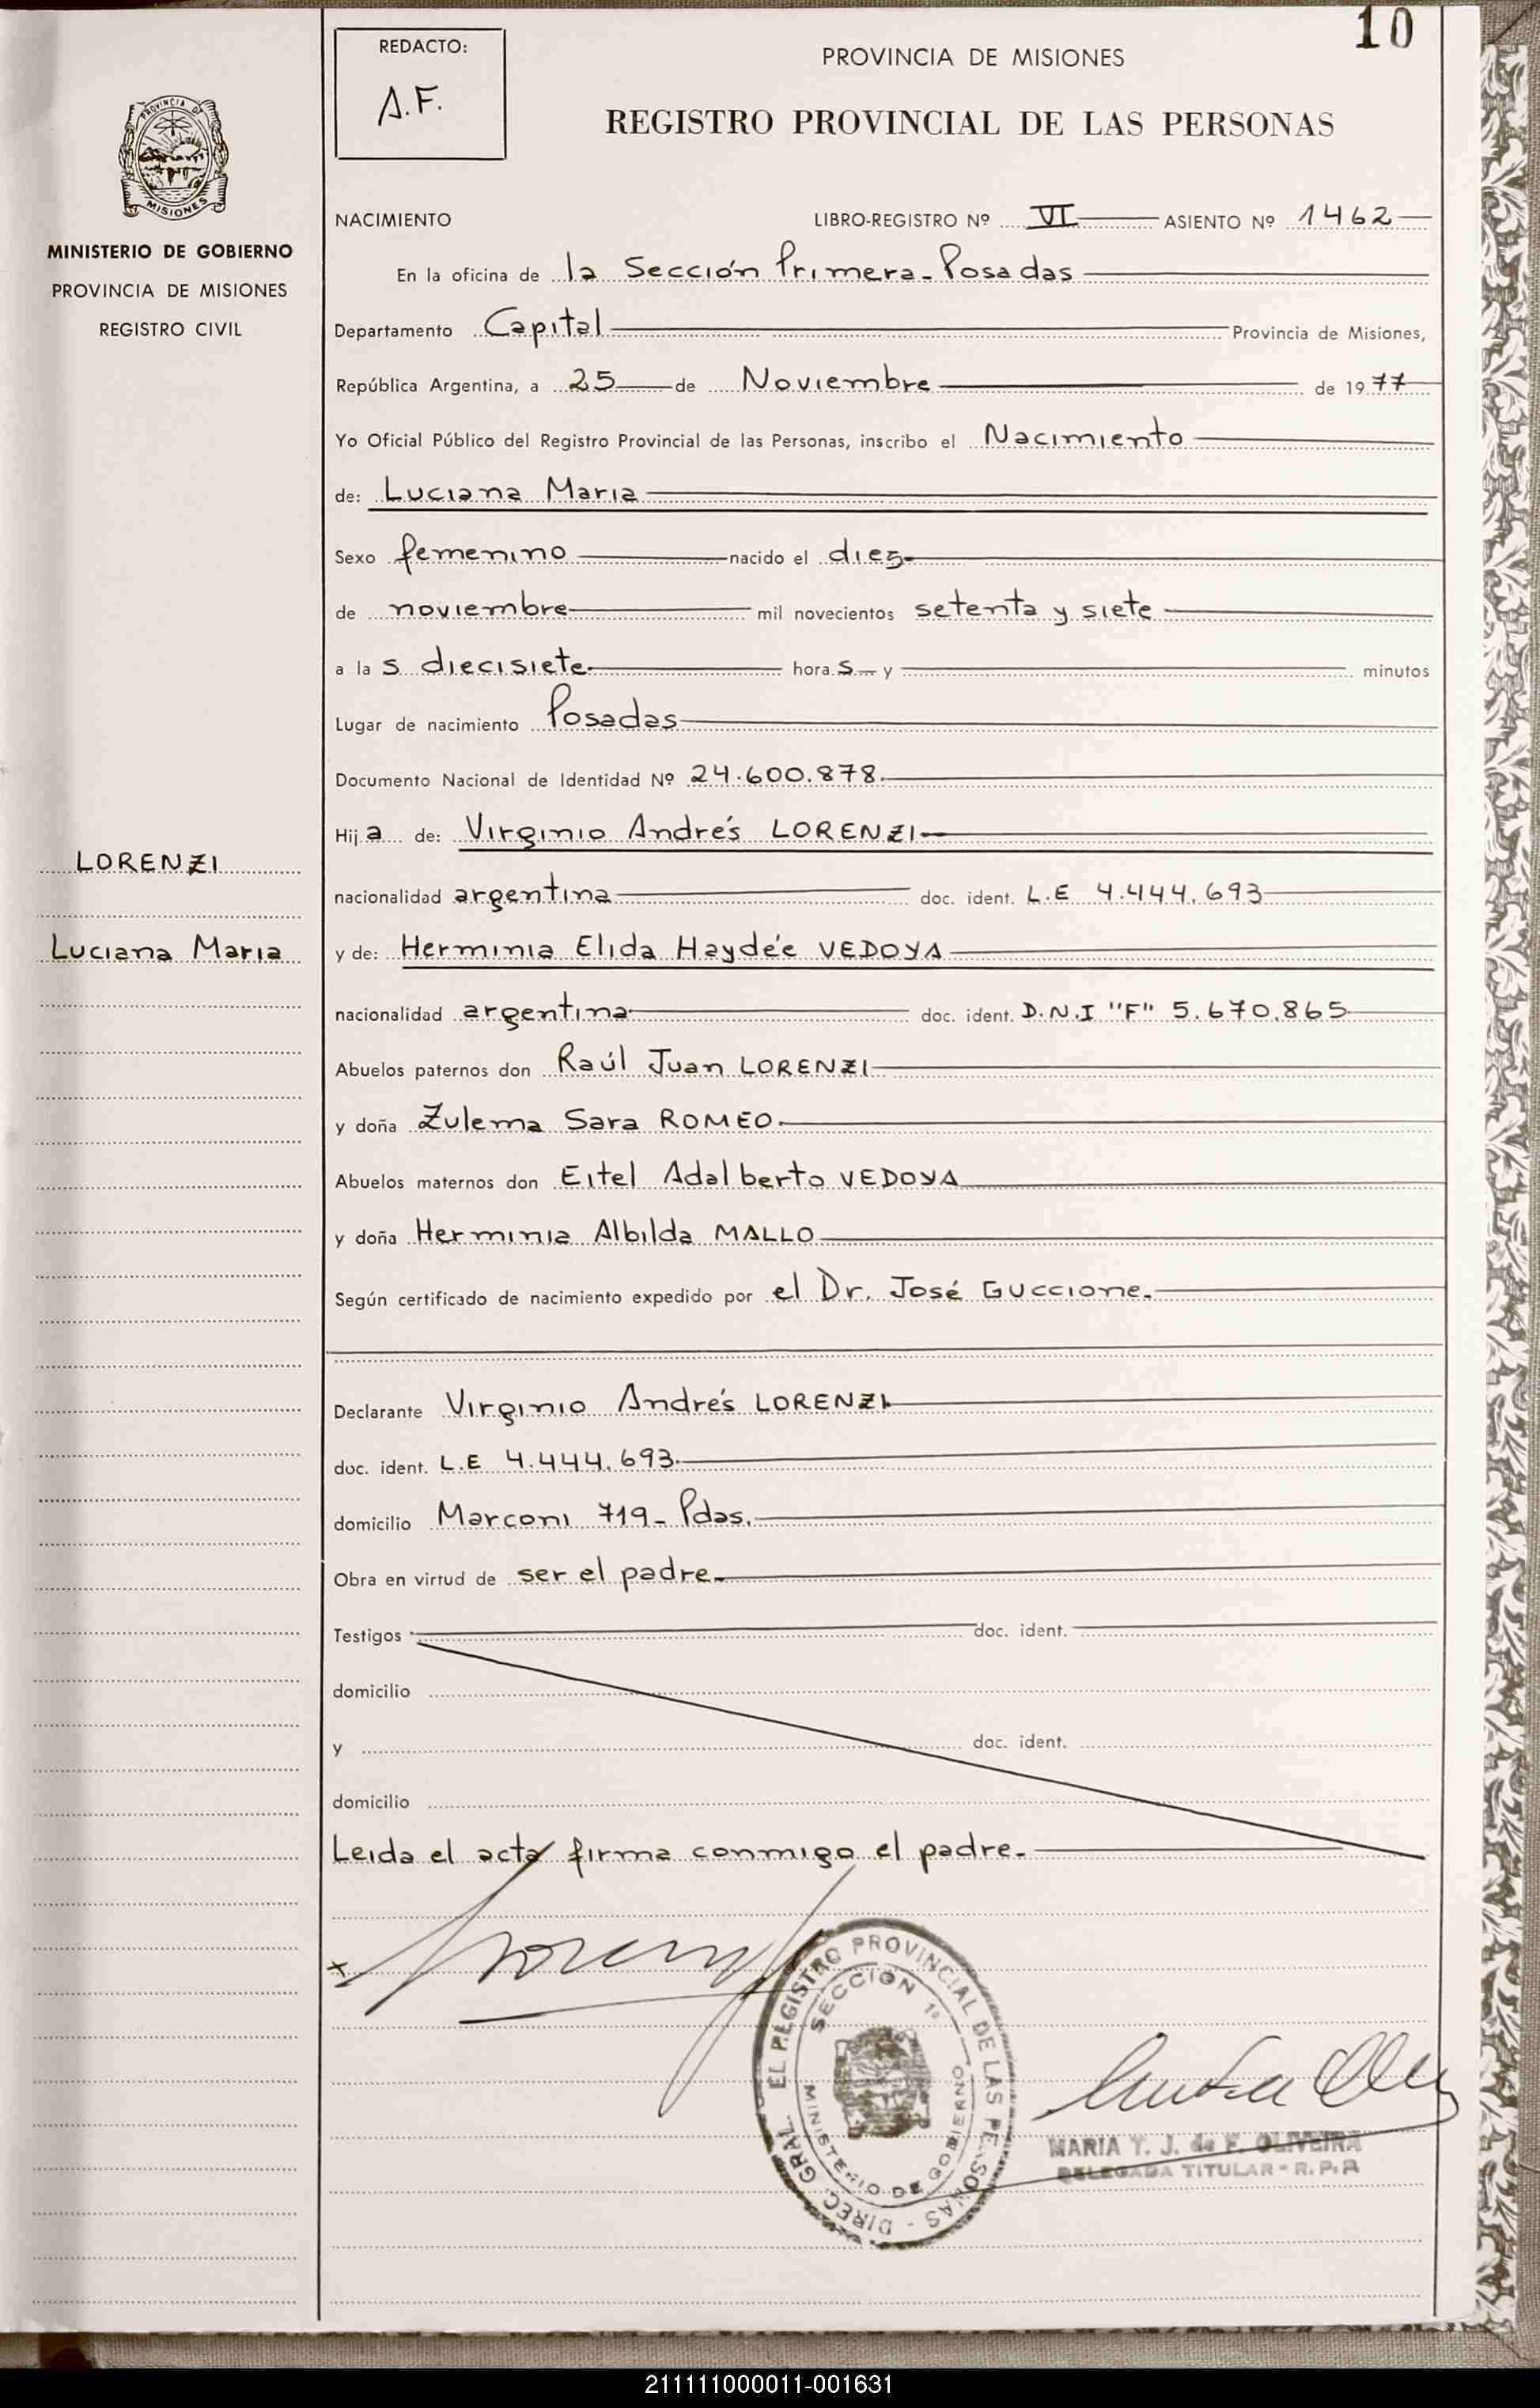 10
REDACTO:
A.F.
PROVINCIA DE MISIONES
REGISTRO PROVINCIAL DE LAS PERSONAS
PROVINCIA DE
MISIONES
MINISTERIO DE GOBIERNO
PROVINCIA DE MISIONES
REGISTRO CIVIL
NACIMIENTO LIBRO-REGISTRO Nº VI ASIENTO Nº 1462
En la oficina de la Sección Primera - Posadas
Departamento Capital Provincia de Misiones,
República Argentina, a 25 de Noviembre de 1977
Yo Oficial Público del Registro Provincial de las Personas, inscribo el Nacimiento
de: Luciana Maria
Sexo femenino nacido el diez
de noviembre mil novecientos setenta y siete
a la s diecisiete hora s y minutos
Lugar de nacimiento Posadas
Documento Nacional de Identidad Nº 24.600.878.
Hij a de: Virginio Andrés LORENZI
LORENZI
nacionalidad argentina doc. ident. L.E 4.444.693
Luciana Maria
y de: Herminia Elida Haydée VEDOYA
nacionalidad argentina doc. ident. D.N.I "F" 5.670.865
Abuelos paternos don Raúl Juan LORENZI
y doña Zulema Sara ROMEO.
Abuelos maternos don Eitel Adalberto VEDOYA
y doña Herminia Albilda MALLO
Según certificado de nacimiento expedido por el Dr. José Guccione.
Declarante Virginio Andrés LORENZI
doc. ident. L.E 4.444.693.
domicilio Marconi 719 - Pdas.
Obra en virtud de ser el padre.
Testigos doc. ident.
domicilio
y doc. ident.
domicilio
Leida el acta firma conmigo el padre.
DIREC. GRAL. EL REGISTRO PROVINCIAL DE LAS PERSONAS -
SECCION 1º
MINISTERIO DE GOBIERNO
MARIA T. J. de F. OLIVEIRA
DELEGADA TITULAR - R.P.P.
211111000011-001631